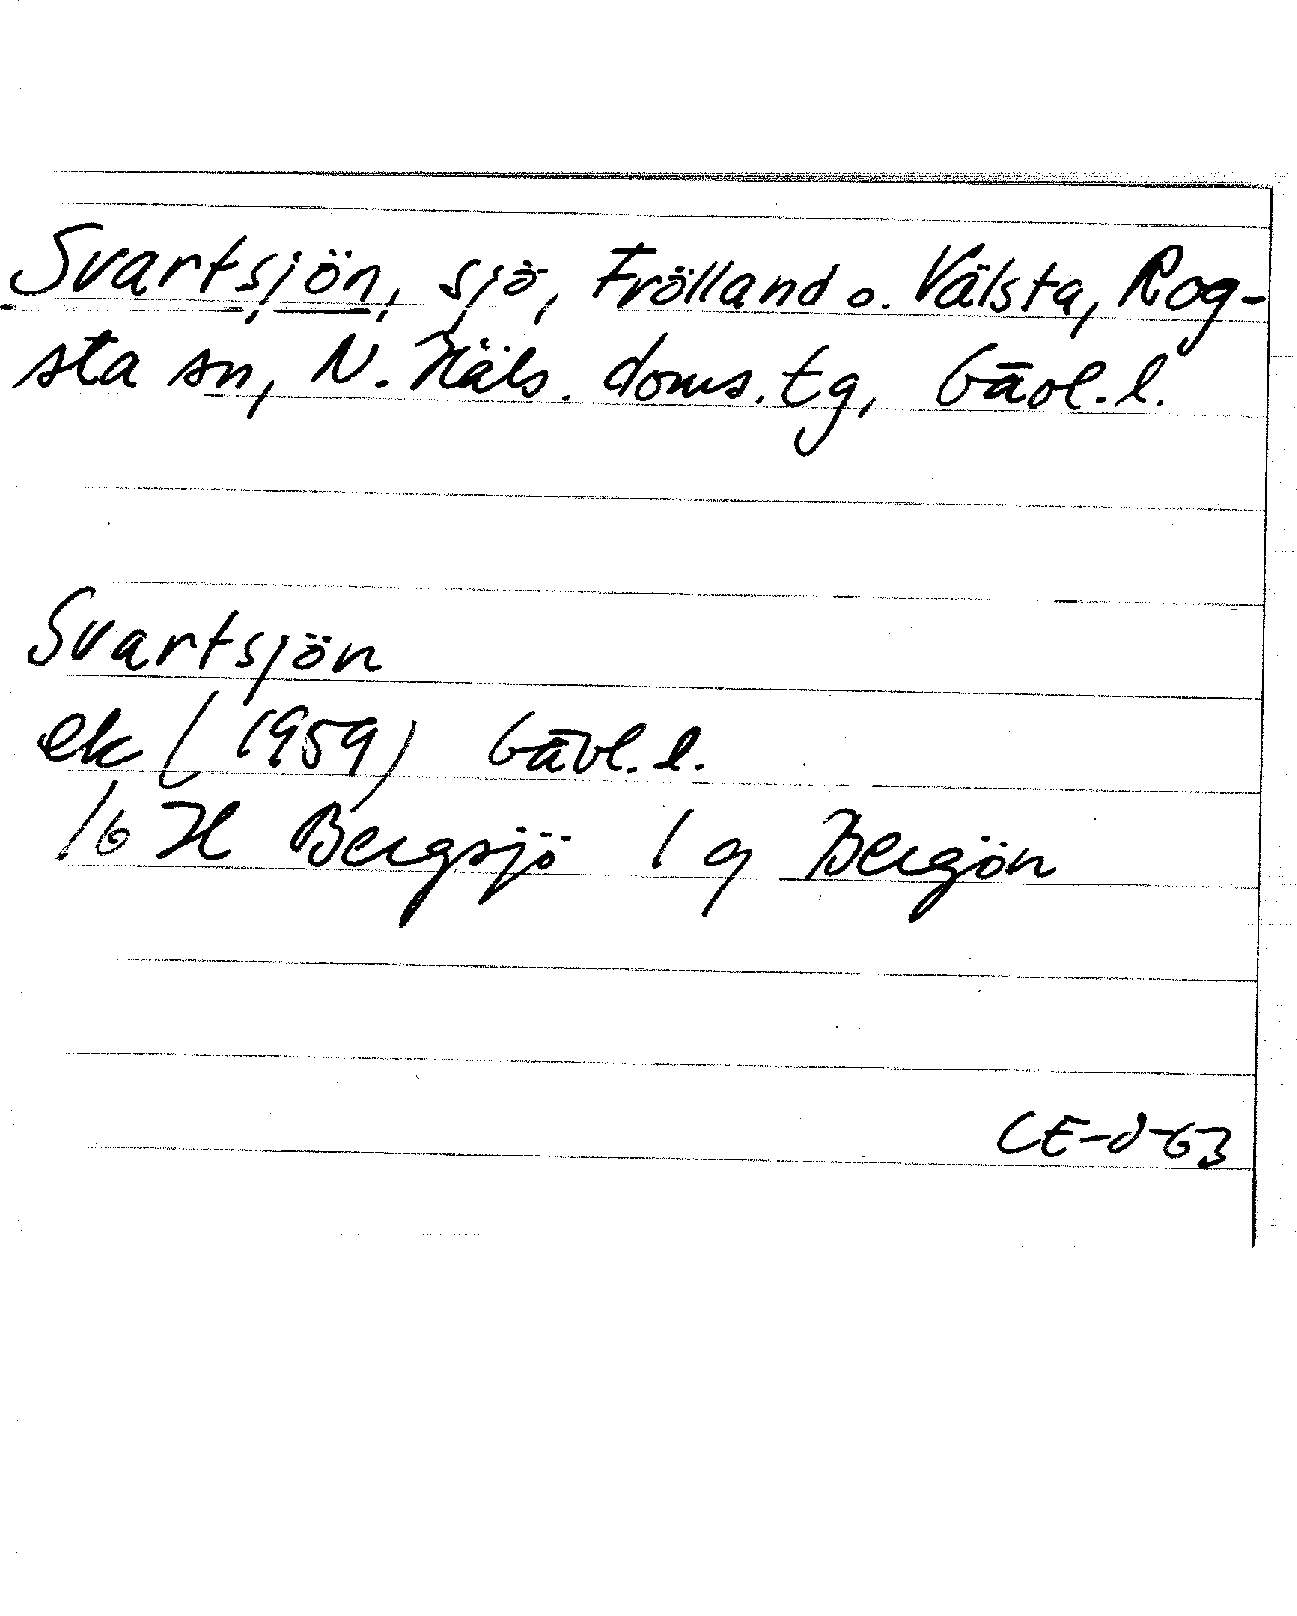 Svartsjön, sjö, Frölland o. Välsta, Rog-
sta sn, N. Häls. doms. tg, Gävl. l.
Svartsjön
ek (1959) Gävl. l.
16 H Bergsjö I g Bergön
CE-d-63